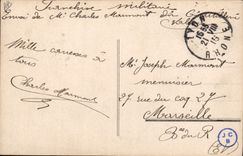 Franchise Militaire
Envoi de Mr Charles Marmont
LYON
RHONE
15
Mille caresses à
tous
Charles Marmont
Mr Joseph Marmont
menuisier
rue du coq 27
Marseille
B. du R
J C
B